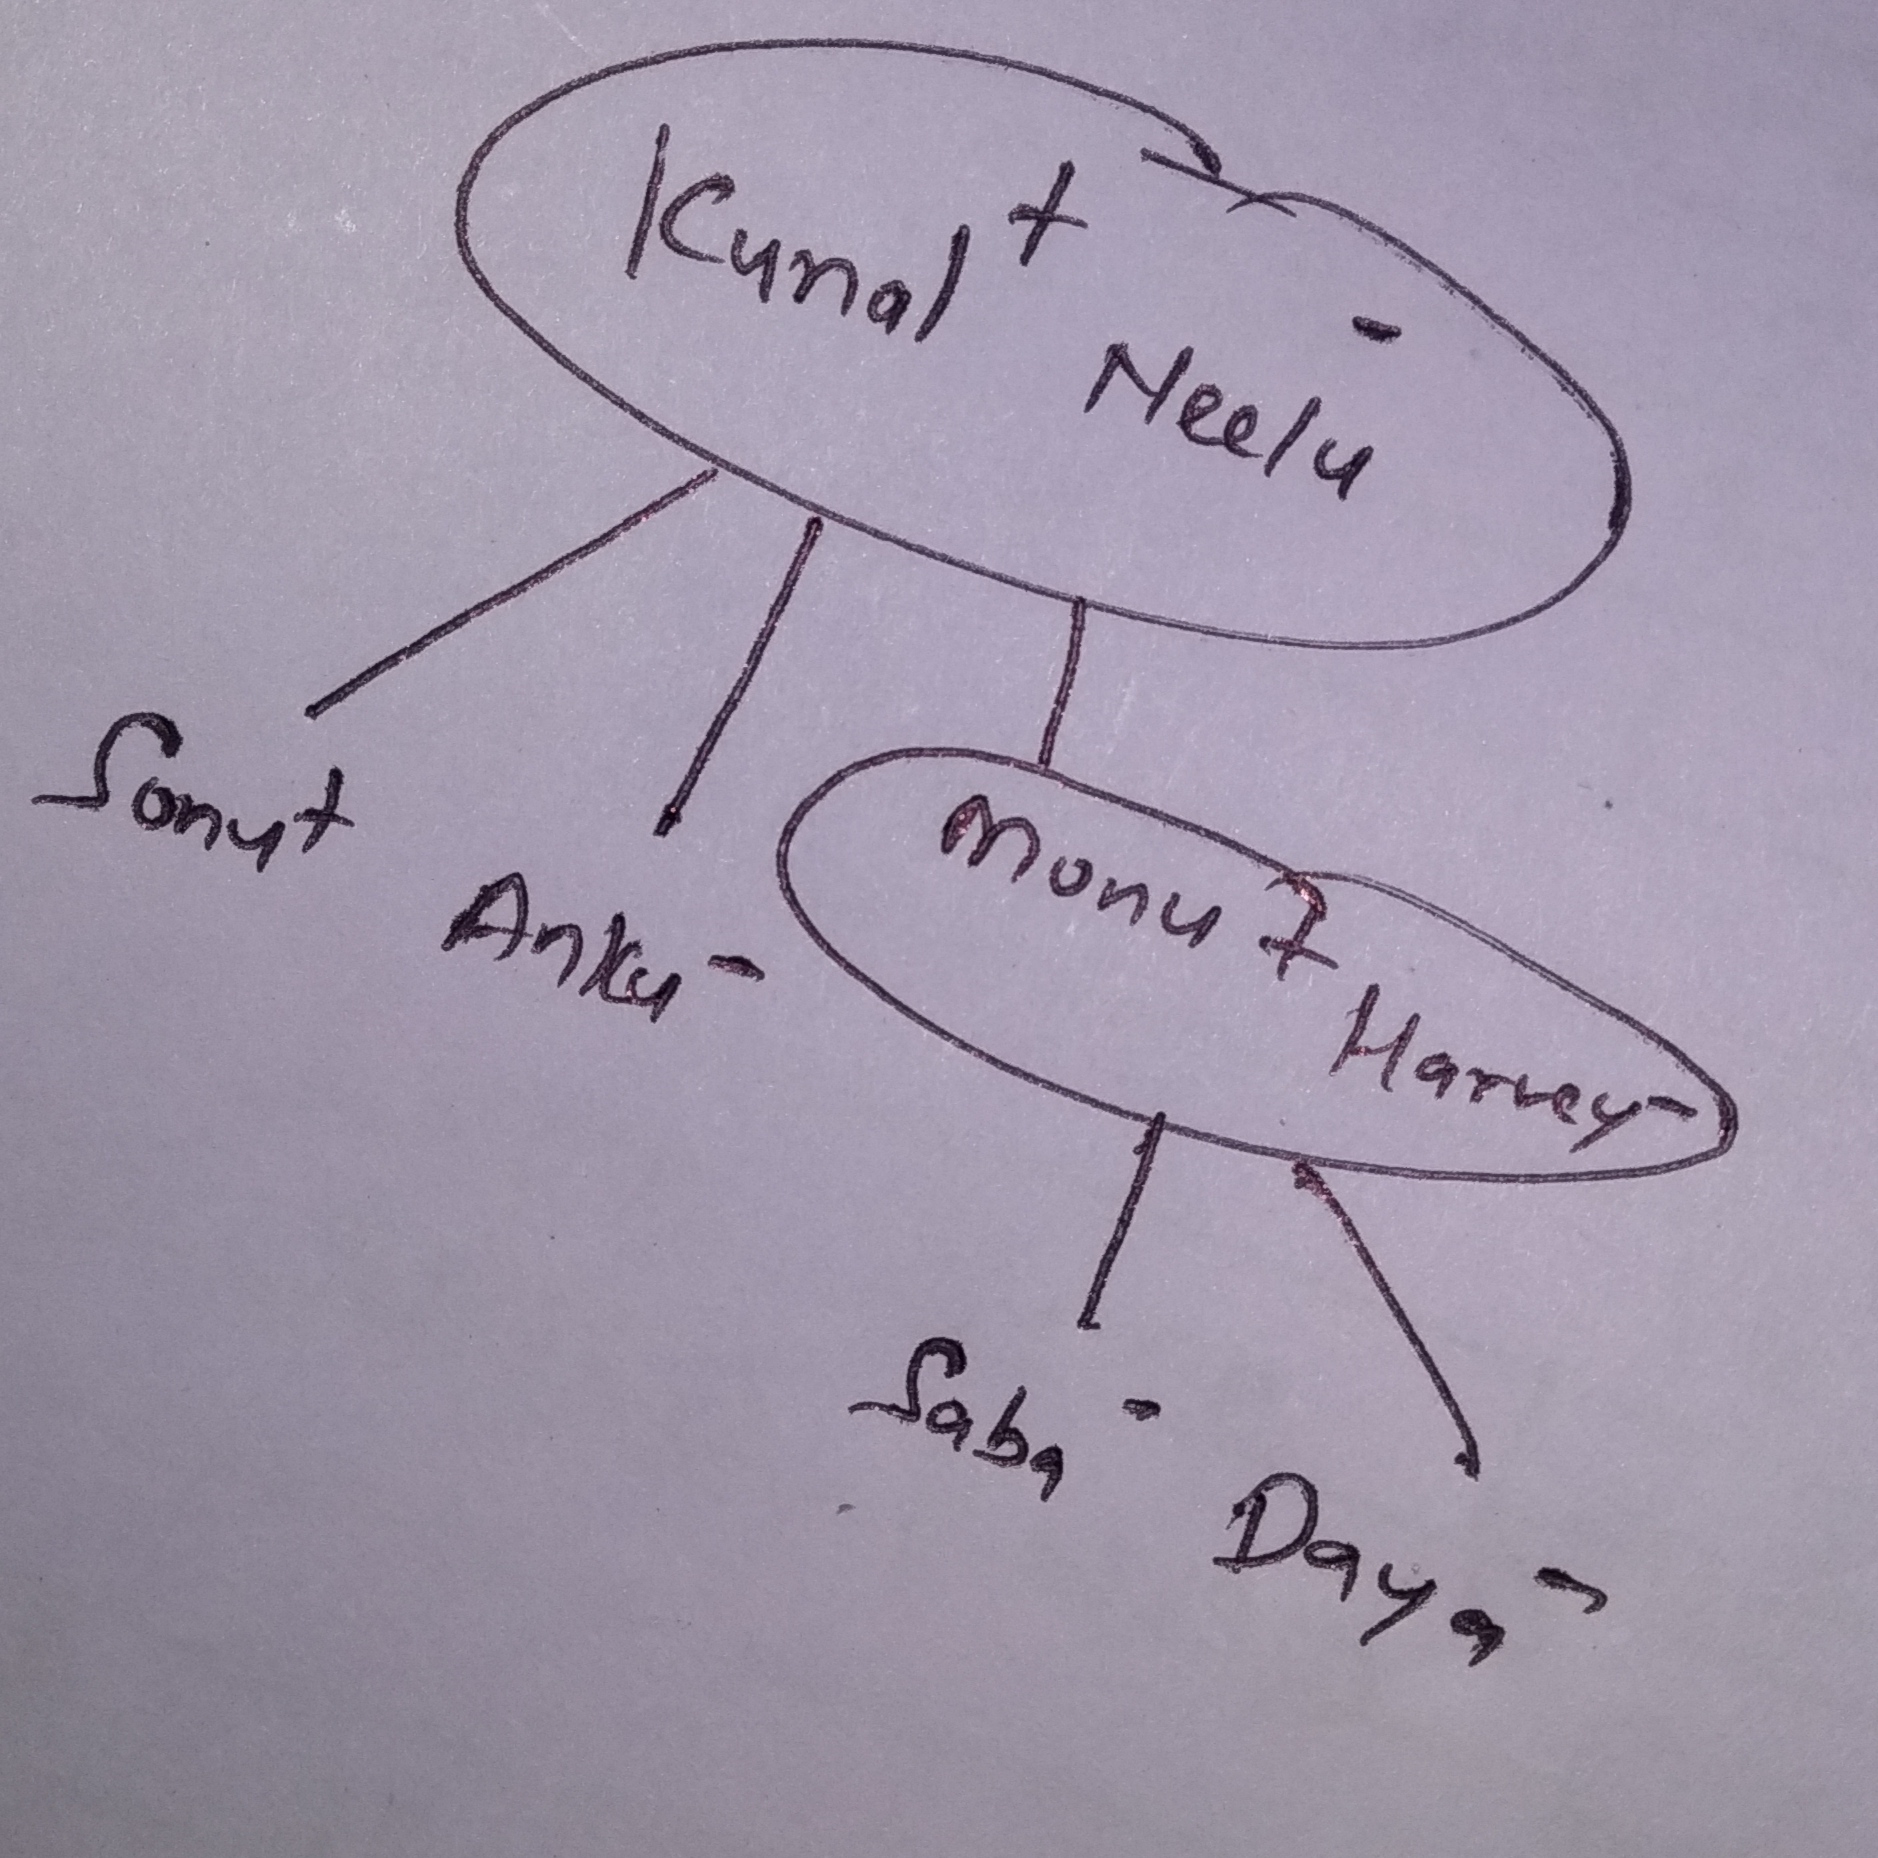 Kunal +
Neelu -
Sonu +
Anku -
Monu +
Harvey -
Saba -
Daya -